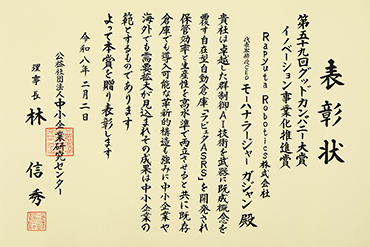 表彰状
第五十九回グッドカンパニー大賞
イノベーション事業化推進賞
Rapyuta Robotics株式会社
代表取締役CEO モーハナラージャー ガジャン 殿
貴社は卓越した群制御AI技術を武器に既成概念を
覆す自在型自動倉庫「ラピュタASRS」を開発され
保管効率と生産性を高水準で両立させると共に既存
倉庫でも導入可能な革新的構造を強みに中小企業や
海外でも需要拡大が見込まれその成果は中小企業の
範とするものであります
よって本賞を贈り表彰します
令和八年二月二日
公益社団法人中小企業研究センター
理事長 林 信秀